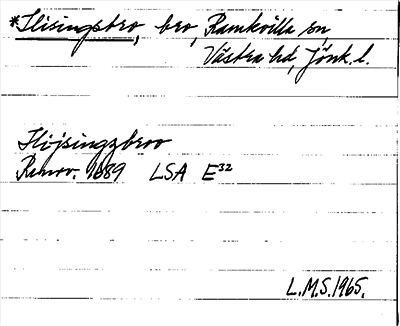 *Flisingsbro, bro, Ramkvilla sn,
Västra hd, Jönk. l.
Flijsingzbroo
Renov. 1689 LSA E32
L.M.S. 1965.